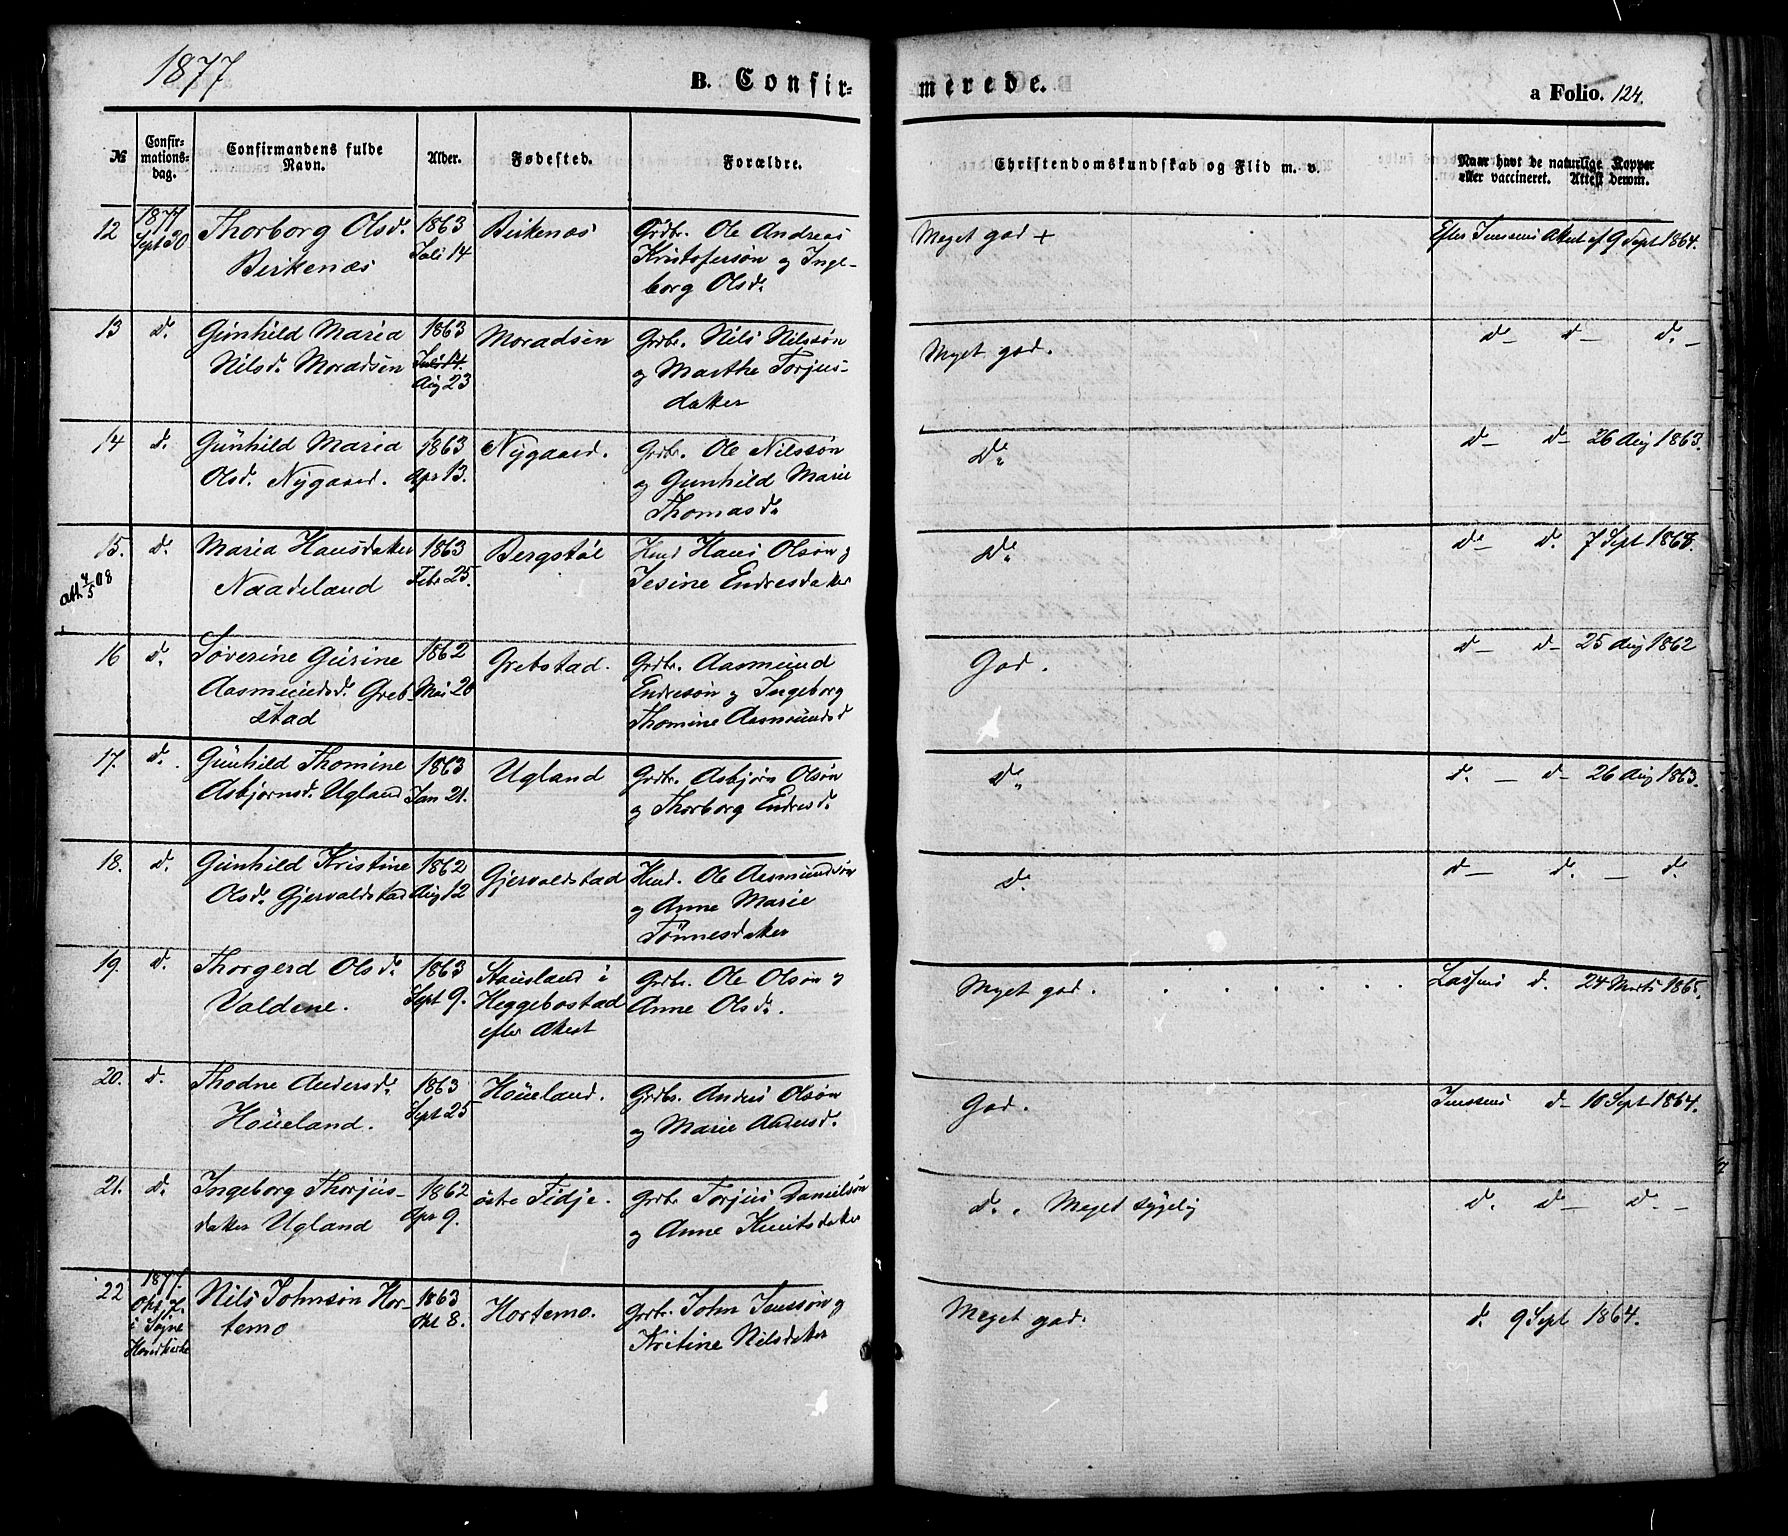 1877
B. Confir- merede. a Folio. 124.
№ Confir-mations-dag. Confirmandens fulde Navn. Alder. Fødested. Forældre. Christendomskundskab og Flid m. v. Naar havt de naturlige Kopper eller vaccineret. Attest derom.
12 1877 Sept 30 Thorborg Olsd. 1863 Birkenæs Grdbr. Ole Andreas Meget god + Efter Jenssens Attest af 9 Sept 1864.
Birkenæs Juli 14 Kristofersøn og Inge-
borg Olsd.
13 d. Gunhild Maria 1863 Moradsen Grdbr. Nils Nilssøn Meget god. d— d— d.—
Nilsd. Moradsen Juli 14. og Marthe Torjus-
Aug 23 datter
14 d. Gunhild Maria 1863 Nygaard. Grdbr. Ole Nilssøn Do d— d— 26 Aug 1863.
Olsd. Nygaard. Apr 13. og Gunhild Marie
Thomasd.
15. d. Maria Hansdatter 1863 Bergstøl Hmd Hans Olsøn og Do d— d. 7 Sept 1868.
att. 4/5 08 Naadeland Febr 25. Jesine Endresdatter
16 d. Søverine Gurine 1862 Grebstad. Grdbr. Aasmund God. d— d— 25 Aug 1862
Aasmundsd. Greb- Mai 20 Endresøn og Ingeborg
stad Thomine Aasmundsd
17. d. Gunhild Thomine 1863 Ugland Grdbr. Asbjørn Olsøn Do d. — d— 26 Aug 1863.
Asbjørnsd. Ugland Jan 21. og Thorborg Endresd.
18. d. Gunhild Kristine 1862 Gjervaldstad Hmd. Ole Aasmundsøn d. d— d. — d.
Olsd. Gjervaldstad Aug 12 og Anne Marie
Tønnesdatter
19. d. Thorgerd Olsd. 1863 Stausland i Grdbr. Ole Olsøn og Meget god. . . . . . . Lassens d. 24 Marts 1865.
Valdene. Sept 9. Heggebostad Anne Olsd.
efter Attest
20. d. Thodne Andersd. 1863 Høueland. Grdbr. Anders Olsøn God. Jenssens d— 10 Sept 1864.
Høueland. Sept 25 og Marie Andersd.
21. d. Ingeborg Thorjus- 1862 østre Fidje. Grdbr Torjus Danielsøn d. . Meget sygelig d. d— d.—
datter Ugland Apr 9. og Anne Knutsdatter
22 1877. Nils Johnsøn Hor- 1863 Hortemo. Grdbr. John Jenssøn og Meget god. d. 9 Sept 1864.
Okt. 7. temo Okt 8. Kritine Nilsdatter
i Søgne
Hovedkirke